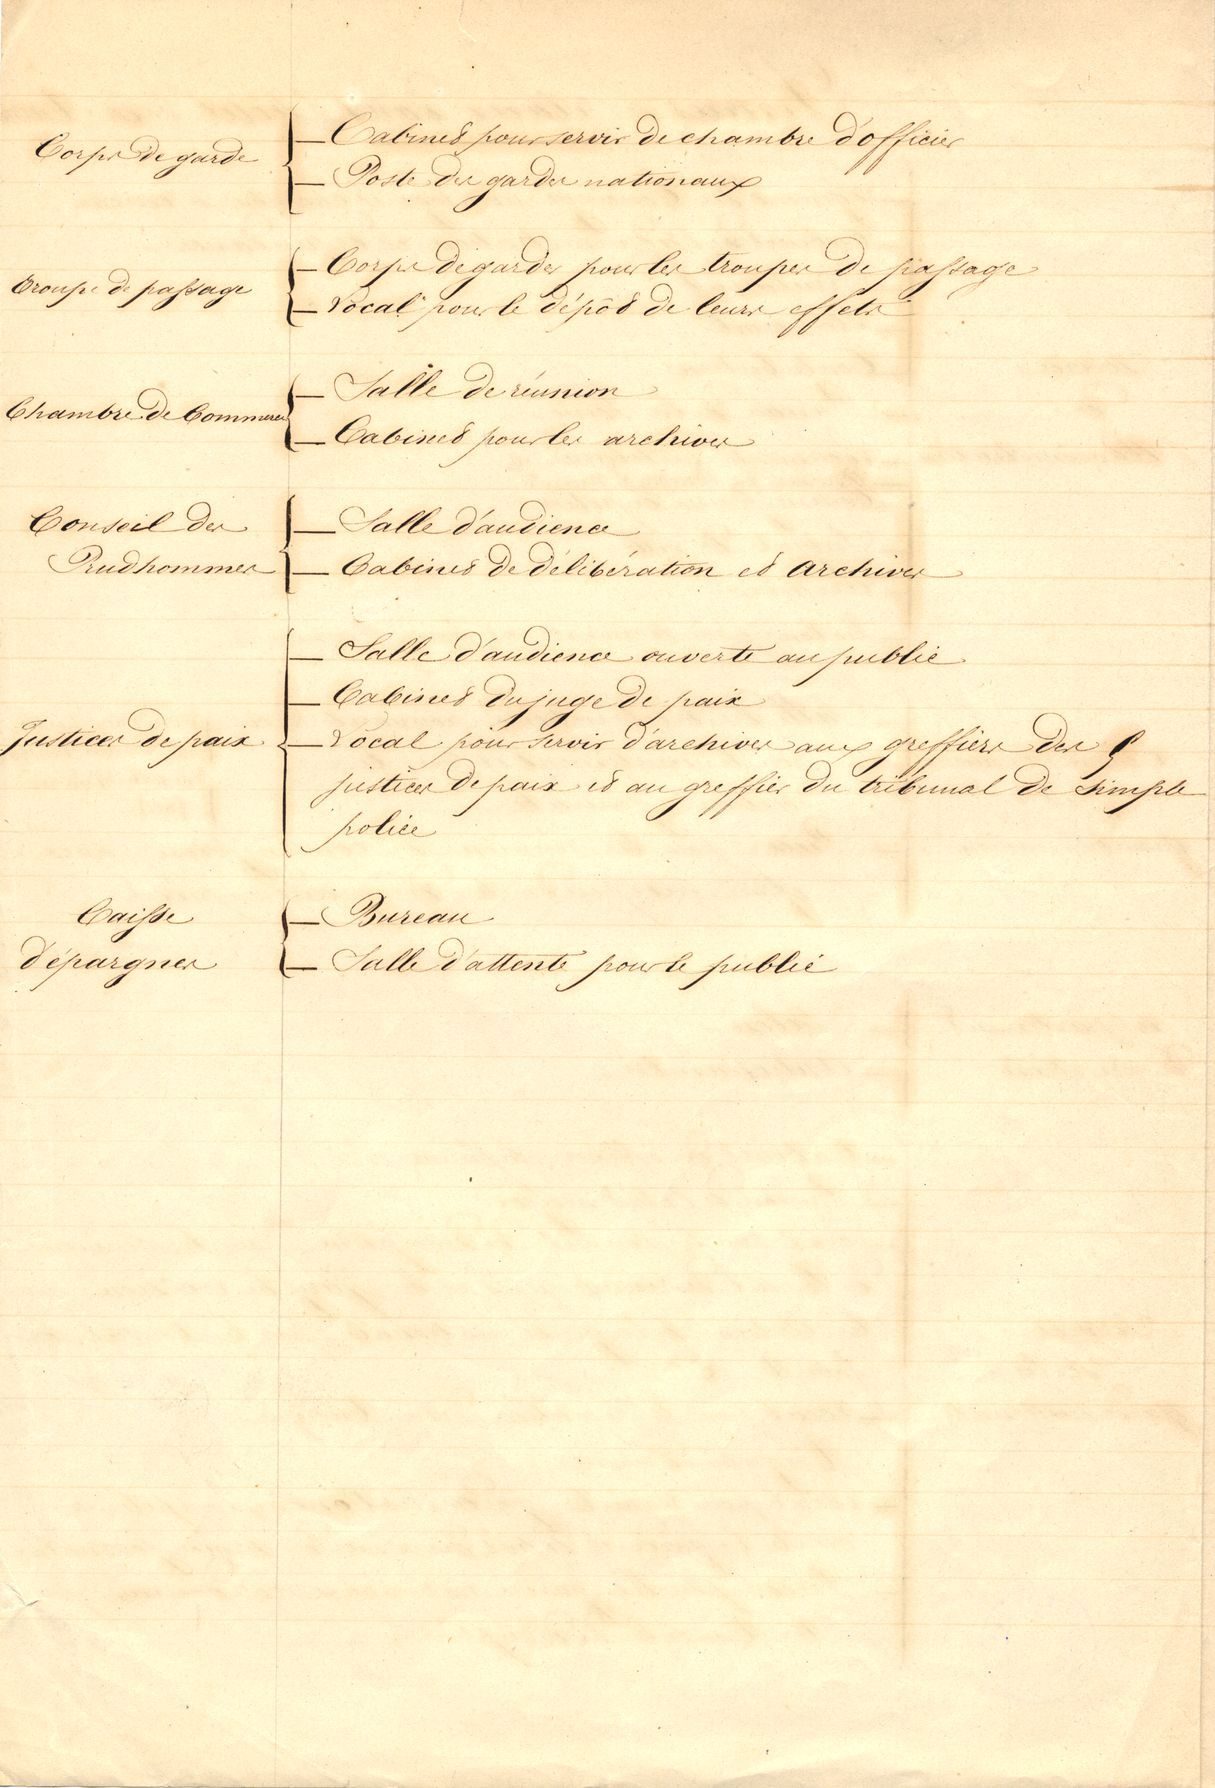 Corps de garde
— Cabinet pour servir de chambre d'officier
— Poste des gardes nationaux
Troupe de passage
— Corps de gardes pour les troupes de passage
— Local pour le dépôt de leurs effets
Chambre de Commerce
— Salle de réunion
— Cabinet pour les archives
Conseil des
Prudhommes
— Salle d'audience
— Cabinet de délibération et archives
Justices de paix
— Salle d'audience ouverte au public
— Cabinet du juge de paix
— Local pour servir d'archives aux greffiers des
justices de paix et au greffier du tribunal de simple
police
Caisse
d'épargnes
— Bureau
— Salle d'attente pour le public